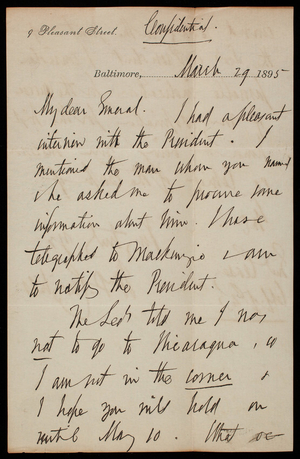 9 Pleasant Street.
Confidential.
Baltimore, March 29 1895
My dear General. I had a pleasant
interview with the President. I
mentioned the man whom you named
& he asked me to procure some
information about him. I have
telegraphed to Mackenzie & am
to notify the President.
The Sec'y told me I was
not to go to Nicaragua, so
I am put in the corner &
I hope you will hold on
until May 10. What